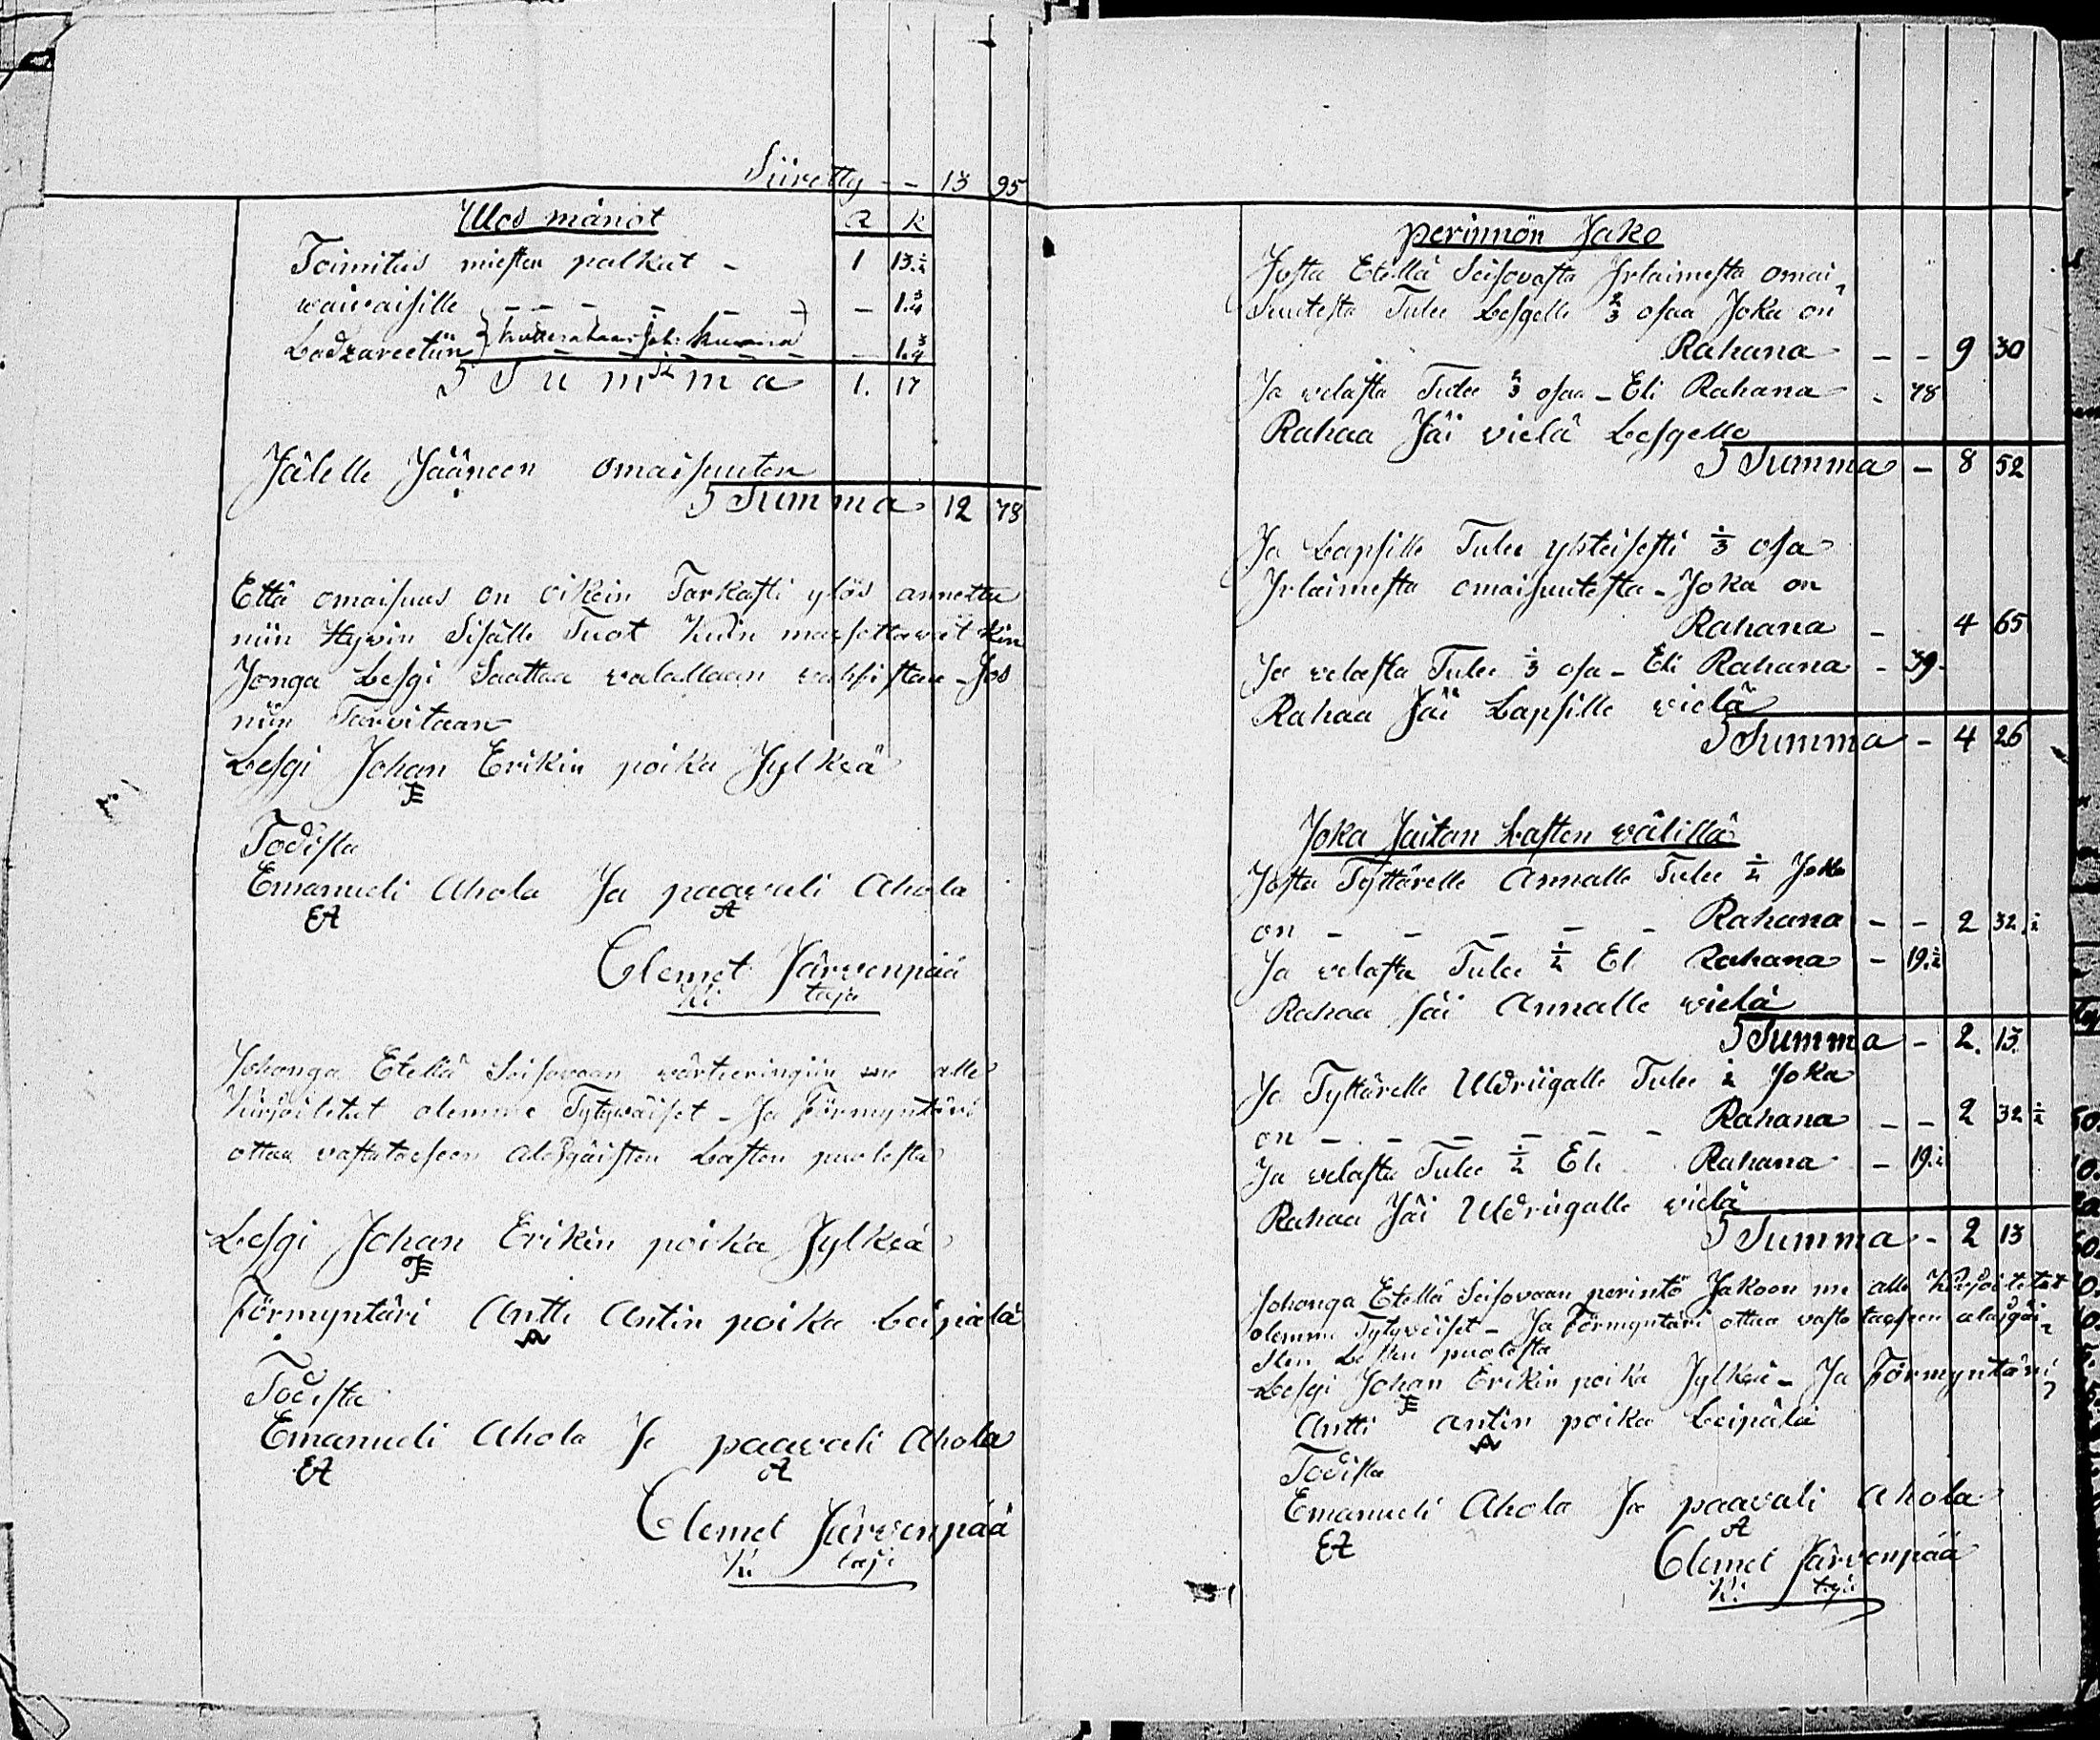 Siiretty - - 13 95
Ulos mänöt R K
Toimitus miesten palkat - 1 13.½
waivaisille - - - - - - 1.¾
Ladzareetiin - - - - - 1.¾
Summa 1. 17
Jälelle Jääneen omaisuuten
Summa 12 78
Että omaisuus on oikein Tarkasti ylös annettu
niin Hyvin Sisälle Tuot Kuin maxettavat kin
Jonga Lesgi Saattaa valallaan vahvistaa - Jos
niin Tarvitaan
Lesgi Johan Erikin poika Jylkeä
JE
Todista
Emanueli Ahola Ja paavali Ahola
EA PA
Clemet Järvenpää
Ki: taja
Johonga Etellä Seisovaan värteeringiin me alle
Kirjoitetut olemme Tytyväiset - Ja Förmyntäri
ottaa vastataxeen alaigäisten Lasten puolesta
Lesgi Johan Erikin poika Jylkeä
JE
Förmyntäri Antti Antin poika Leipälä
AA
Todista
Emanueli Ahola Ja paavali Ahola
EA PA
Clemet Järvenpää
Ki: taja
perinnön Jako
Josta Etellä Seisovasta Irlaimesta omai„
suutesta Tulee Lesgelle ⅔ osaa Joka on
Rahana - - 9 30
Ja velasta Tulee ⅔ osaa - Eli Rahana - 78
Rahaa Jäi vielä Lesgelle
Summa - 8 52
Ja Lapsille Tulee yhteisesti ⅓ osa
Irlaimesta omaisuutesta - Joka on
Rahana - 4 65
Ja velasta Tulee ⅓ osa - Eli Rahana - 39-
Rahaa Jäi Lapsille vielä
Summa - 4 26
Joka Jaitan Lasten välillä
Josta Tyttärelle Annalle Tulee ½ Joka
on - - - - - Rahana - - 2 32.½
Ja velasta Tulee ½ Eli Rahana - 19.½
Rahaa Jäi Annalle vielä
Summa - 2. 13.
Ja Tyttärelle Uldriigalle Tulee ½ Joka
on - - - - - - Rahana - - 2 32 ½
Ja velasta Tulee ½ Eli Rahana - 19.½
Rahaa Jäi Uldriigalle vielä
Summa - 2 13
Johonga Etellä Seisovaan perintö Jakoon me alle Kirjoitetut
olemme Tytyväiset - Ja Förmyntäri ottaa vasta taxeen alaigäi„
sten Lasten puolesta
Lesgi Johan Erikin poika Jylkeä - Ja Förmyntäri
JE
Antti antin poika Leipälä
AA
Todista
Emanueli Ahola Ja paavali Ahola
EA PA
Clemet Järvenpää
Ki: taja